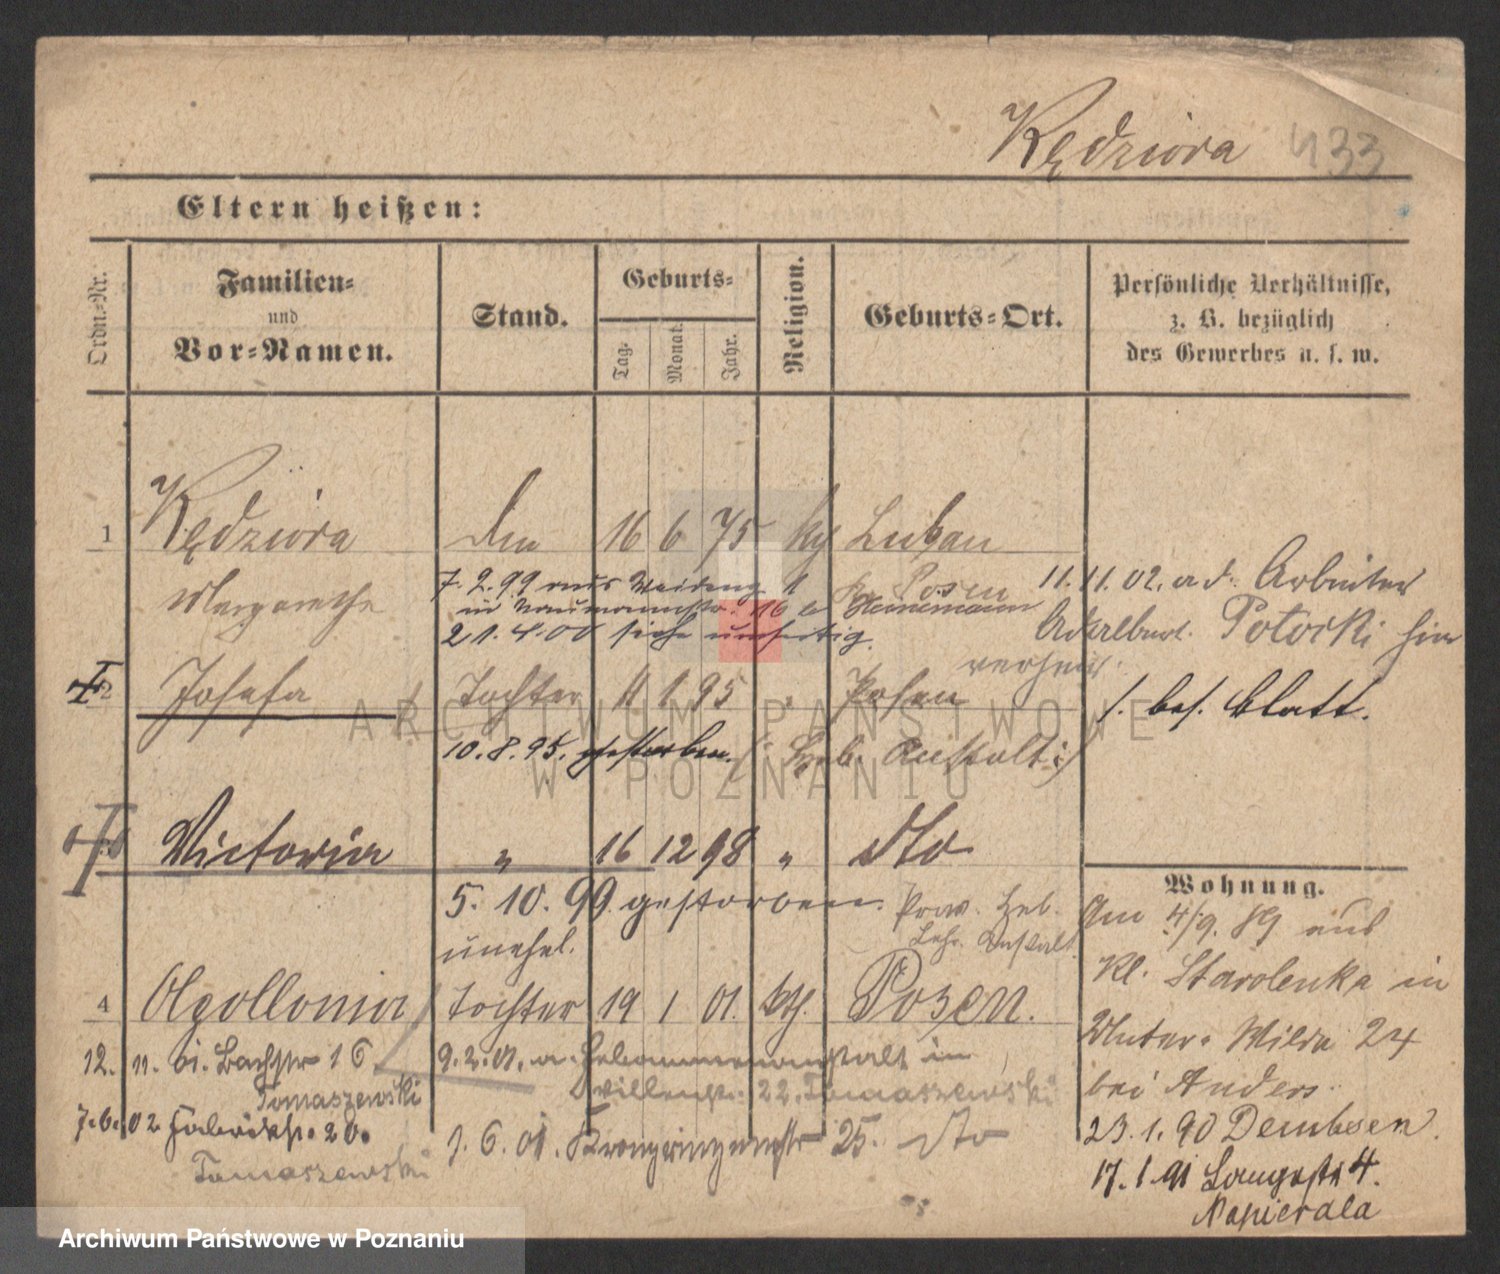 Kędziora 433
Eltern heißen:
Ordn.-Nr.
Familien-
und
Vor-Namen.
Stand.
Geburts-
Tag.
Monat.
Jahr.
Religion.
Geburts-Ort.
Persönliche Verhältnisse,
z. B. bezüglich
des Gewerbes u. s. w.
1 Kędziora 16 6 75 Luban
Margarethe
7. 2. 99 aus 1
in Naumannstr. 16 b Heinemann
21. 4. 00 siehe
Posen
11. 11. 02. a d. Arbeiter
Potocki hier
verheir.
2 Josefa Tochter 11 1 95 " Posen
s. bes. Blatt.
10. 8. 95. gestorben. (: Heb. Anstalt :)
Victoria " 16 12 98 " dto
5. 10. 99 gestorben. Prov. Heb.
Lehr. Anstalt
unehel.
4 Apollonia Tochter 19 1 01. kth. Posen.
12. 11. 01. Bachstr 16
Tomaszewski
9. 2. 01. a. Hebammenanstalt in
22. Tomaszewski
7. 6. 02 Fabrikstr. 20.
Tomaszewski
1. 6. 01. Kronprinzenstr 25. dto
Wohnung.
Am 4/9. 89 aus
Kl. Starolenka in
Unter-Wilda 24
bei Anders.
23. 1. 90 Dembsen.
17. 1. 91 Langestr 4.
Napierala
ARCHIWUM PAŃSTWOWE
W POZNANIU
Archiwum Państwowe w Poznaniu